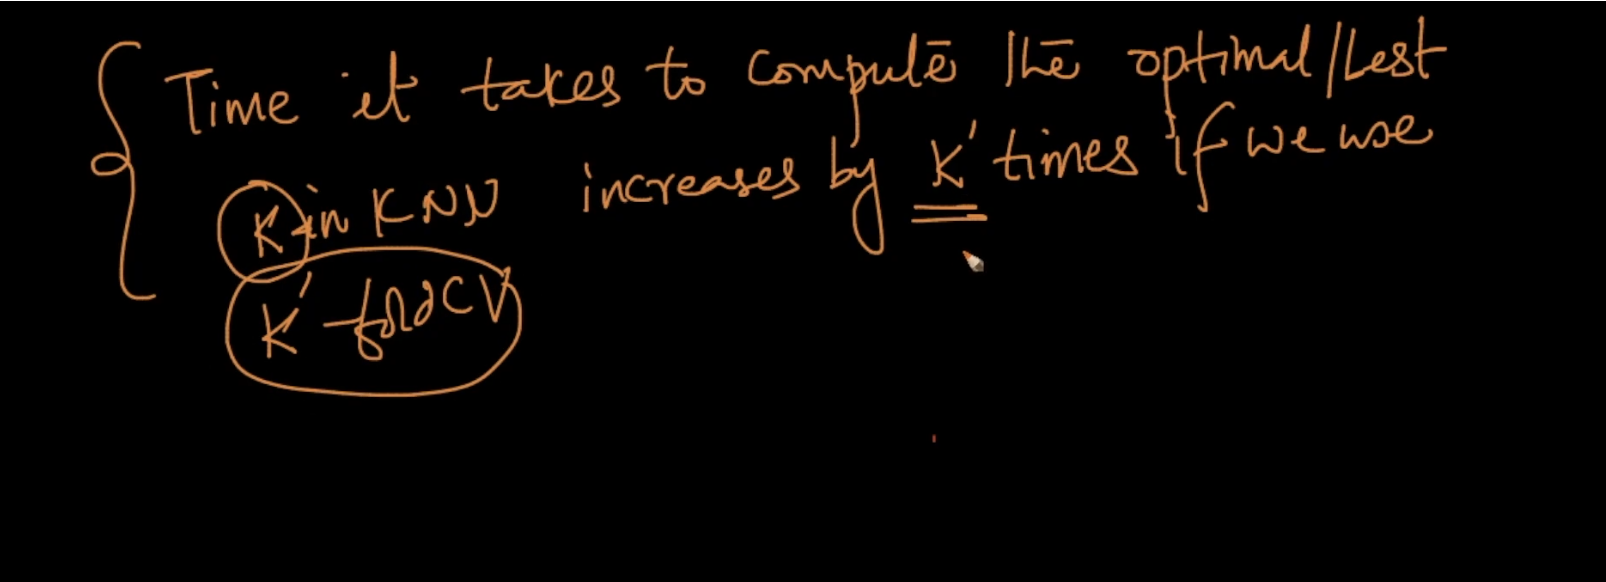 Time it takes to compute the optimal/best
K in KNN increases by K' times if we use
K'-fold CV